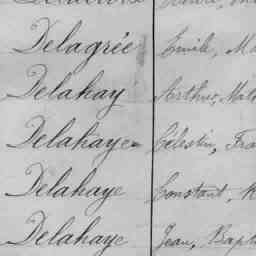 Delagrée Emile,
Delahay Arthur,
Delahaye Célestin,
Delahaye Constant,
Delahaye Jean,